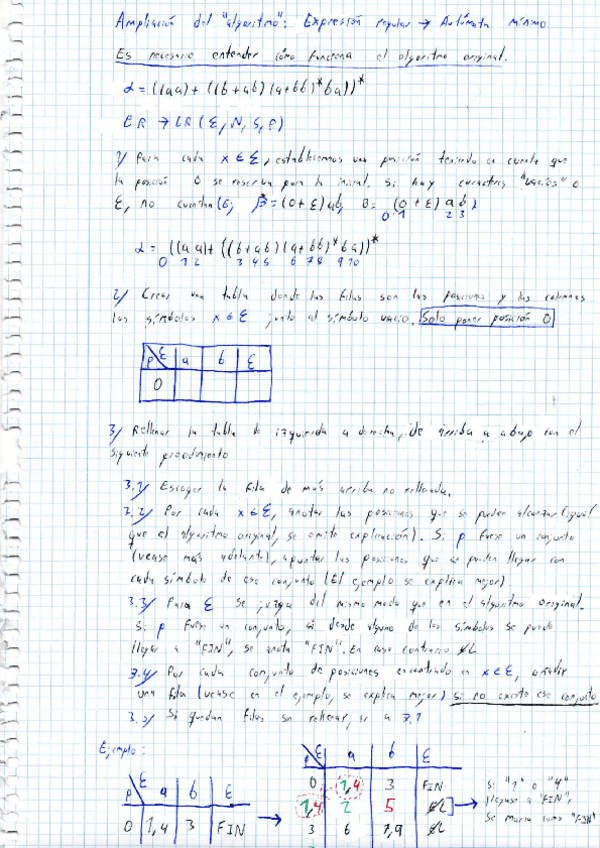 Ampliación del "algoritmo": Expresión regular → Autómata mínimo
Es necesario entender cómo funciona el algoritmo original.
α = ((aa) + ((b+ab)(a+bb)*ba))*
ER → LR (Σ, N, S, P)
1/ Para cada x ∈ Σ, establecemos una posición teniendo en cuenta que
la posición 0 se reserva para la inicial. Si hay caracteres "vacíos" o
ε, no cuentan
β = (0+ε)ab, B = (0+ε)ab
0 1 2 3
α = ((aa) + ((b+ab)(a+bb)*ba))*
0 1 2 3 4 5 6 7 8 9 10
2/ Crear una tabla donde las filas son las posiciones y las columnas
los símbolos x ∈ Σ junto al símbolo vacío. Solo poner posición 0
P Σ a b ε
0
3/ Rellenar la tabla de izquierda a derecha, de arriba a abajo con el
siguiente procedimiento
3.1/ Escoger la fila de más arriba no rellenada.
3.2/ Por cada x ∈ Σ, anotar las posiciones que se pueden alcanzar (igual
que el algoritmo original, se omite explicación). Si p fuese un conjunto
(vease más adelante), apuntar las posiciones que se pueden llegar con
cada símbolo de ese conjunto (El ejemplo se explica mejor)
3.3/ Para ε se juzga del mismo modo que en el algoritmo original.
Si p fuese un conjunto, si desde alguno de los símbolos se puede
llegar a "FIN", se anota "FIN". En caso contrario
3.4/ Por cada conjunto de posiciones encontrado en x ∈ Σ, añadir
una fila (vease en el ejemplo, se explica mejor) si no existe ese conjunto
3.5/ Si quedan filas sin rellenar, ir a 3.1
Ejemplo:
P Σ a b ε
0 1,4 3 FIN
→
P Σ a b ε
0 1,4 3 FIN
1,4 2 5
3 6 7,9
→ Si "1" o "4"
llegase a "FIN",
se marca como "FIN"